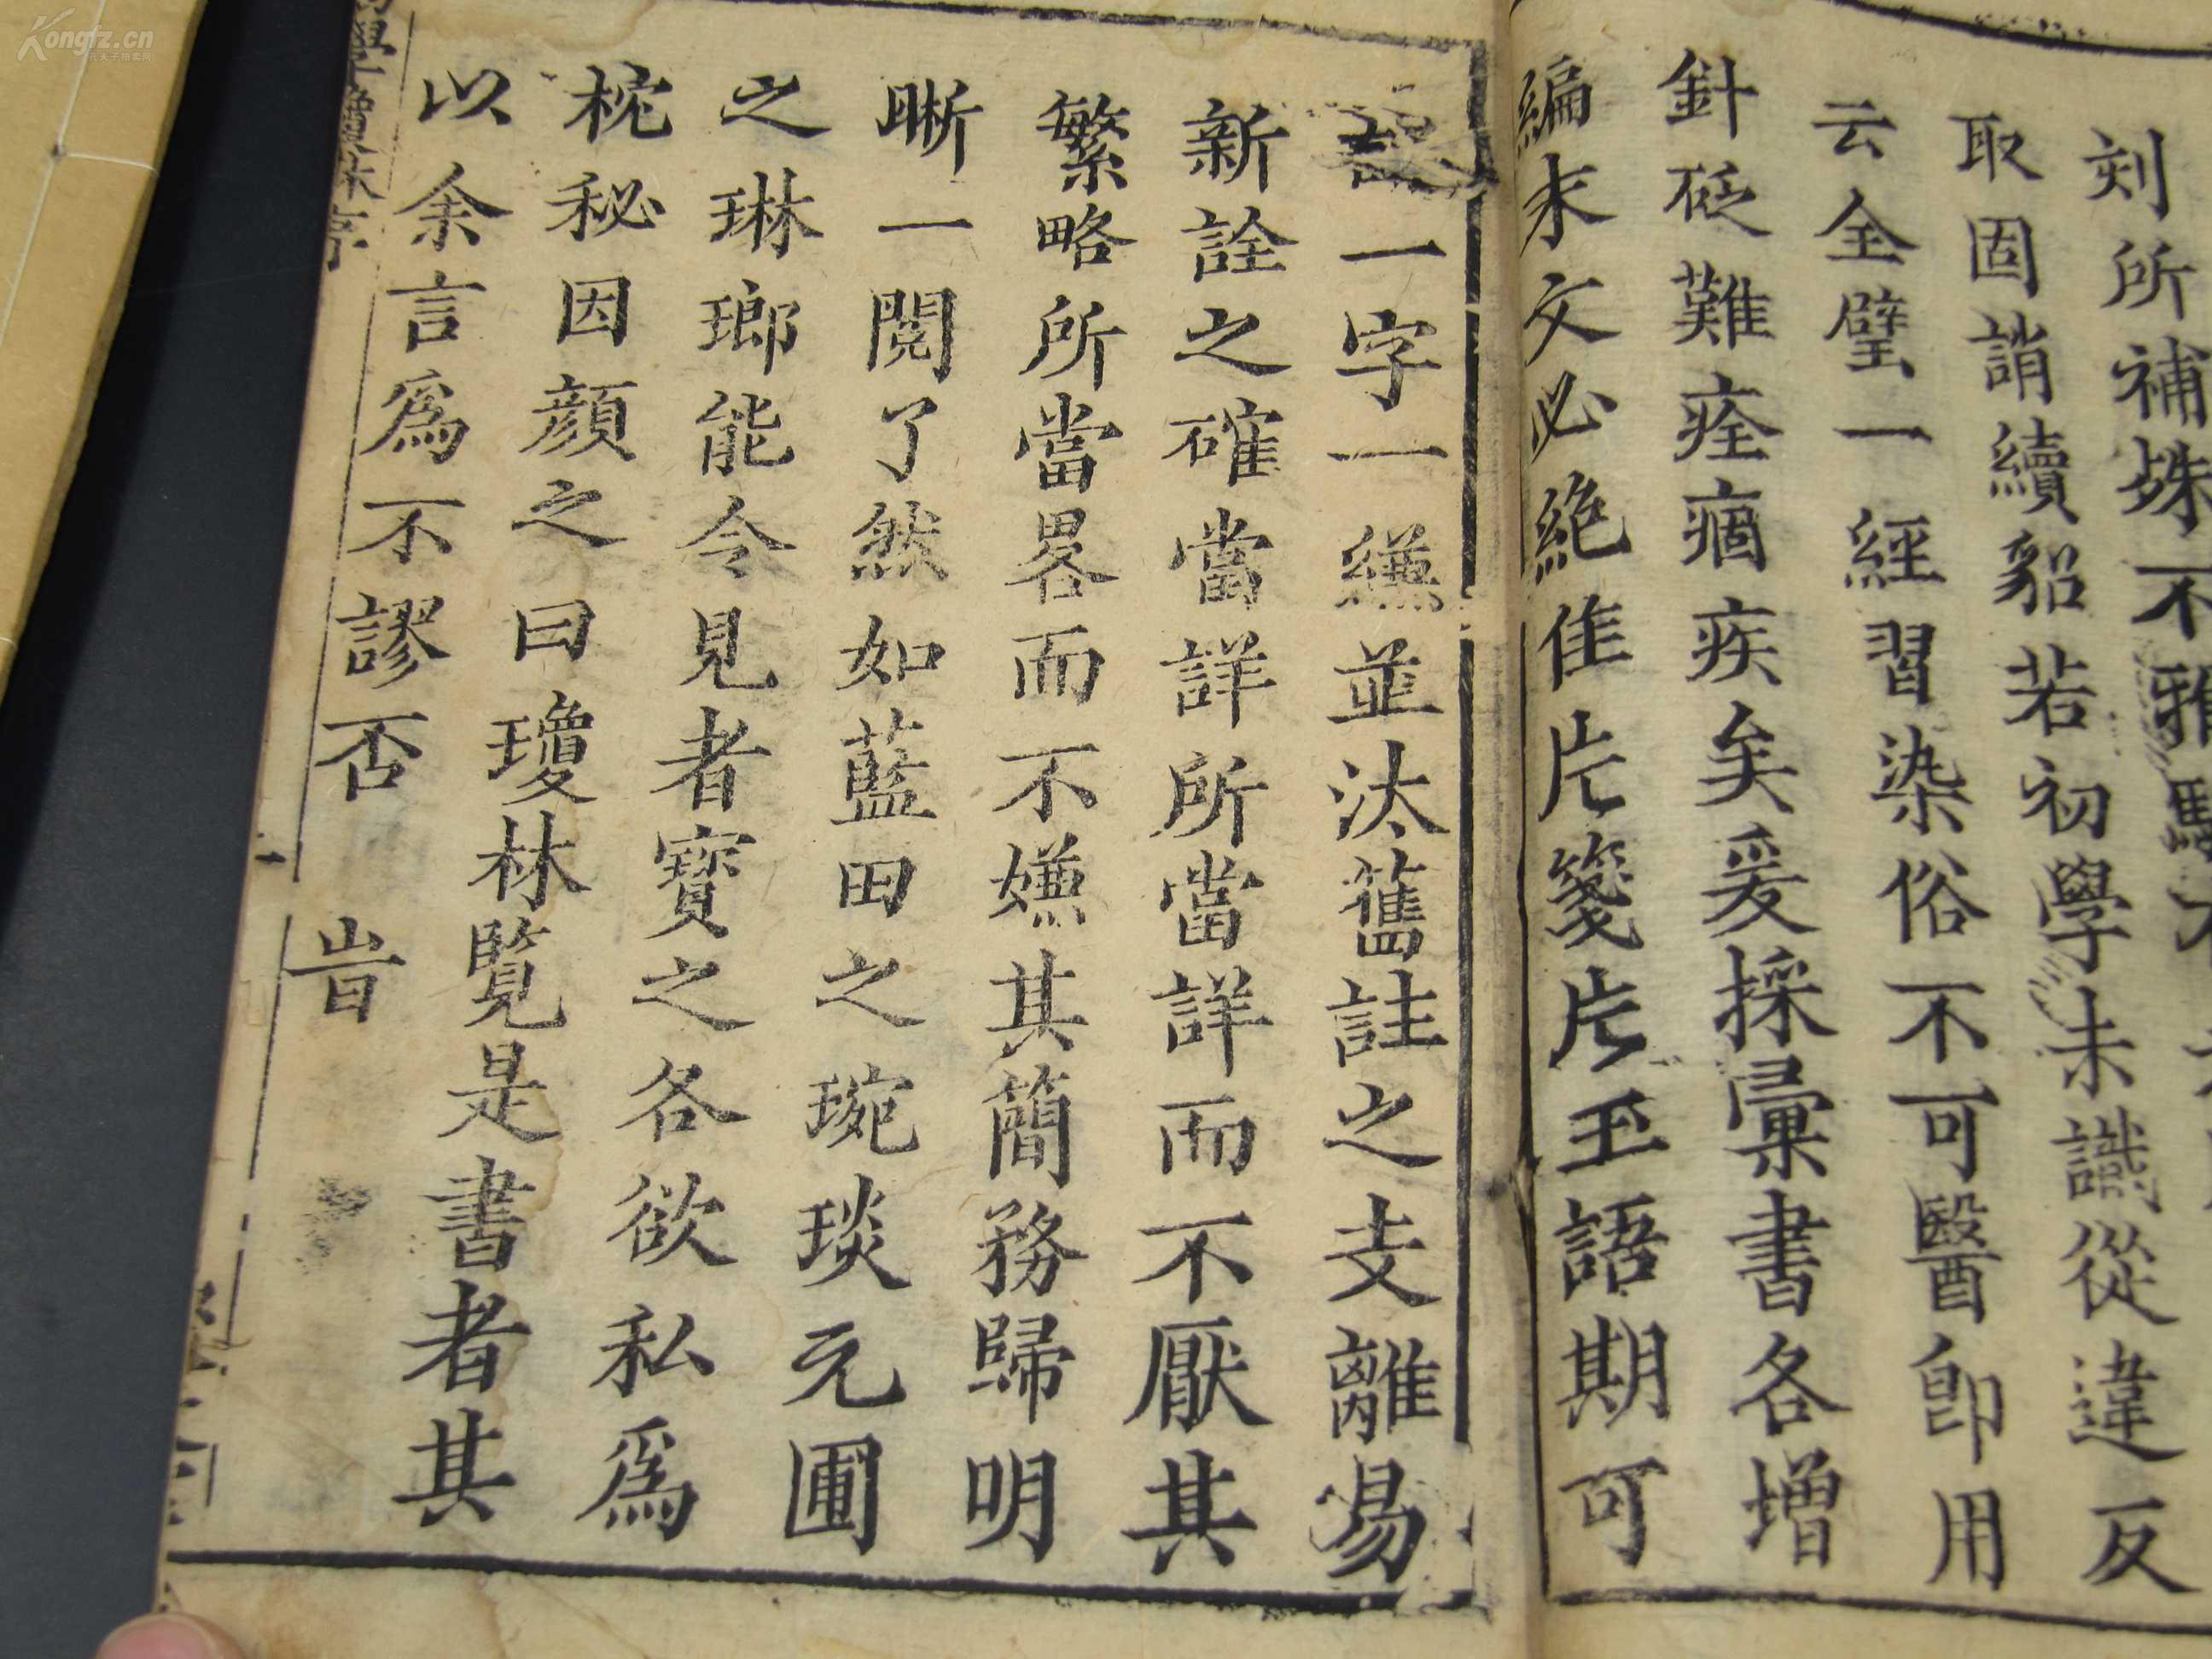 刻所補姝不雅
取固誚續貂若初學未識從違反
云全璧一經習染俗不可醫卽用
針砭難痊痼疾矣爰採彙書各增
編末文必絶佳片箋片玉語期可
一字一縑並汰舊註之支離易
新詮之確當詳所當詳而不厭其
繁略所當畧而不嫌其簡務歸明
晰一閱了然如藍田之琬琰元圃
之琳瑯能令見者寶之各欲私爲
枕秘因顔之曰瓊林覽是書者其
以余言爲不謬否 旹
Kongfz.cn